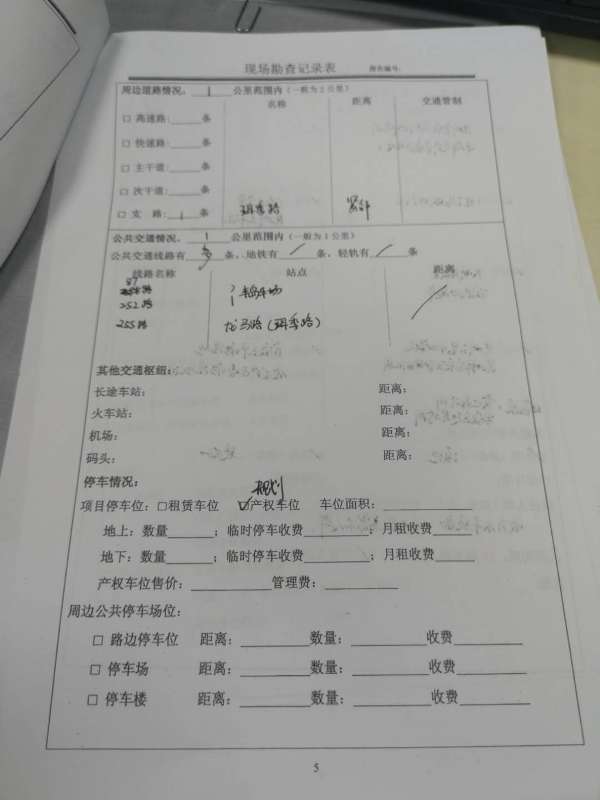 现场勘查记录表 报告编号:
周边道路情况, 1 公里范围内（一般为2公里）
名称 距离 交通管制
□ 高速路: 条
□ 快速路: 条
□ 主干道: 条
□ 次干道: 条
□ 支 路: 1 条 珥季路 紧邻
公共交通情况, 1 公里范围内（一般为1公里）
公共交通线路有 多 条、地铁有 / 条、轻轨有 / 条
线路名称 站点 距离
87
252路
255路 龙马路（珥季路）
其他交通枢纽:
长途车站: 距离:
火车站: 距离:
机场: 距离:
码头: 距离:
停车情况:
规划
项目停车位: □租赁车位 ☑产权车位 车位面积:
地上: 数量 ; 临时停车收费 ; 月租收费
地下: 数量 ; 临时停车收费 ; 月租收费
产权车位售价: 管理费:
周边公共停车场位:
□ 路边停车位 距离: 数量: 收费
□ 停车场 距离: 数量: 收费
□ 停车楼 距离: 数量: 收费
5